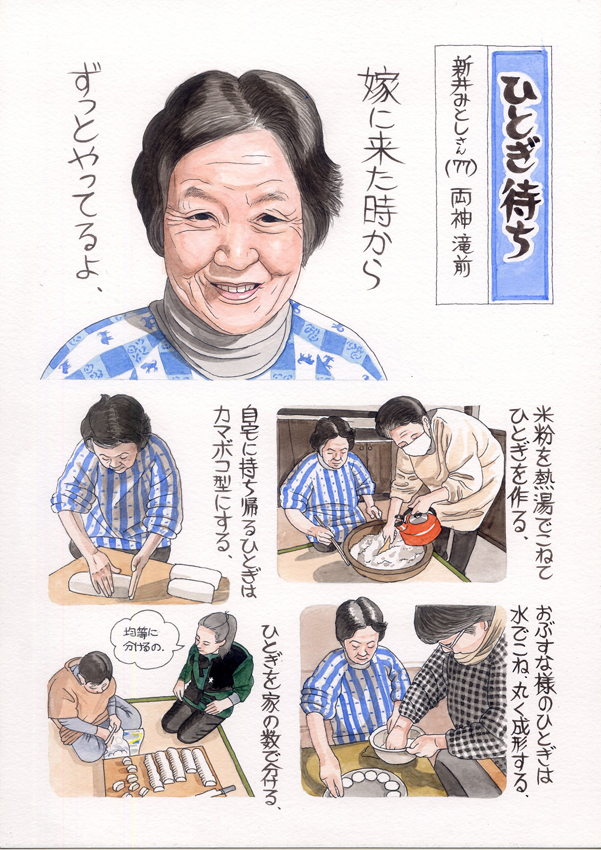 ひとぎ待ち
新井みとしさん(77) 両神滝前
嫁に来た時から
ずっとやってるよ、
米粉を熱湯でこねて
ひとぎを作る、
自宅に持ち帰るひとぎは
カマボコ型にする、
おぶすな様のひとぎは
水でこね、丸く成形する.
ひとぎを家の数で分ける、
均等に
分けるの.